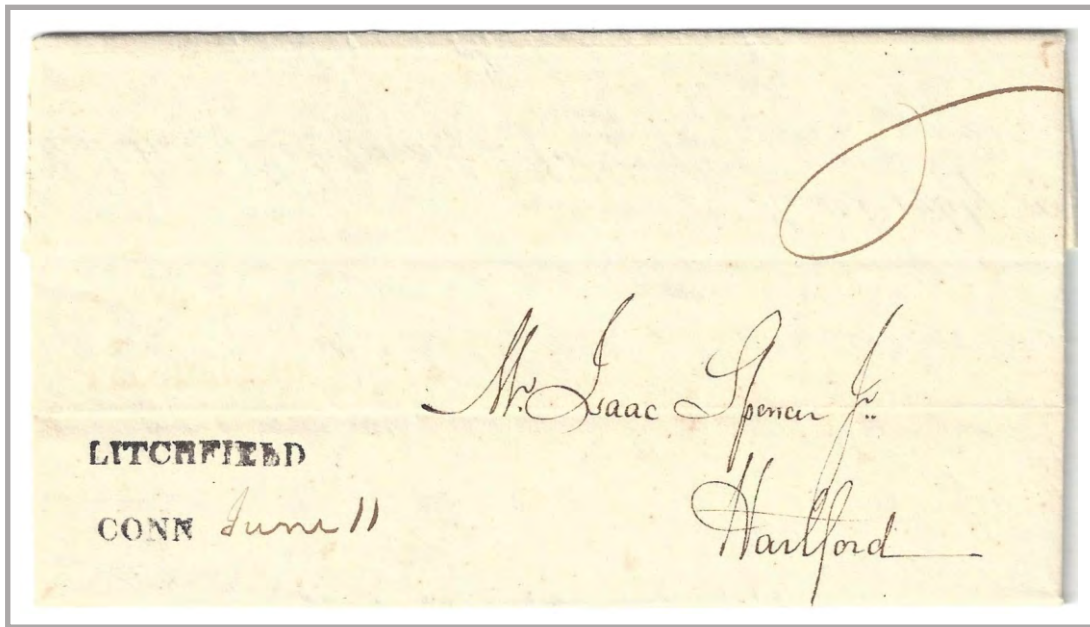 Mr. Isaac Spencer Jr.
Hartford
LITCHFIELD
CONN June 11